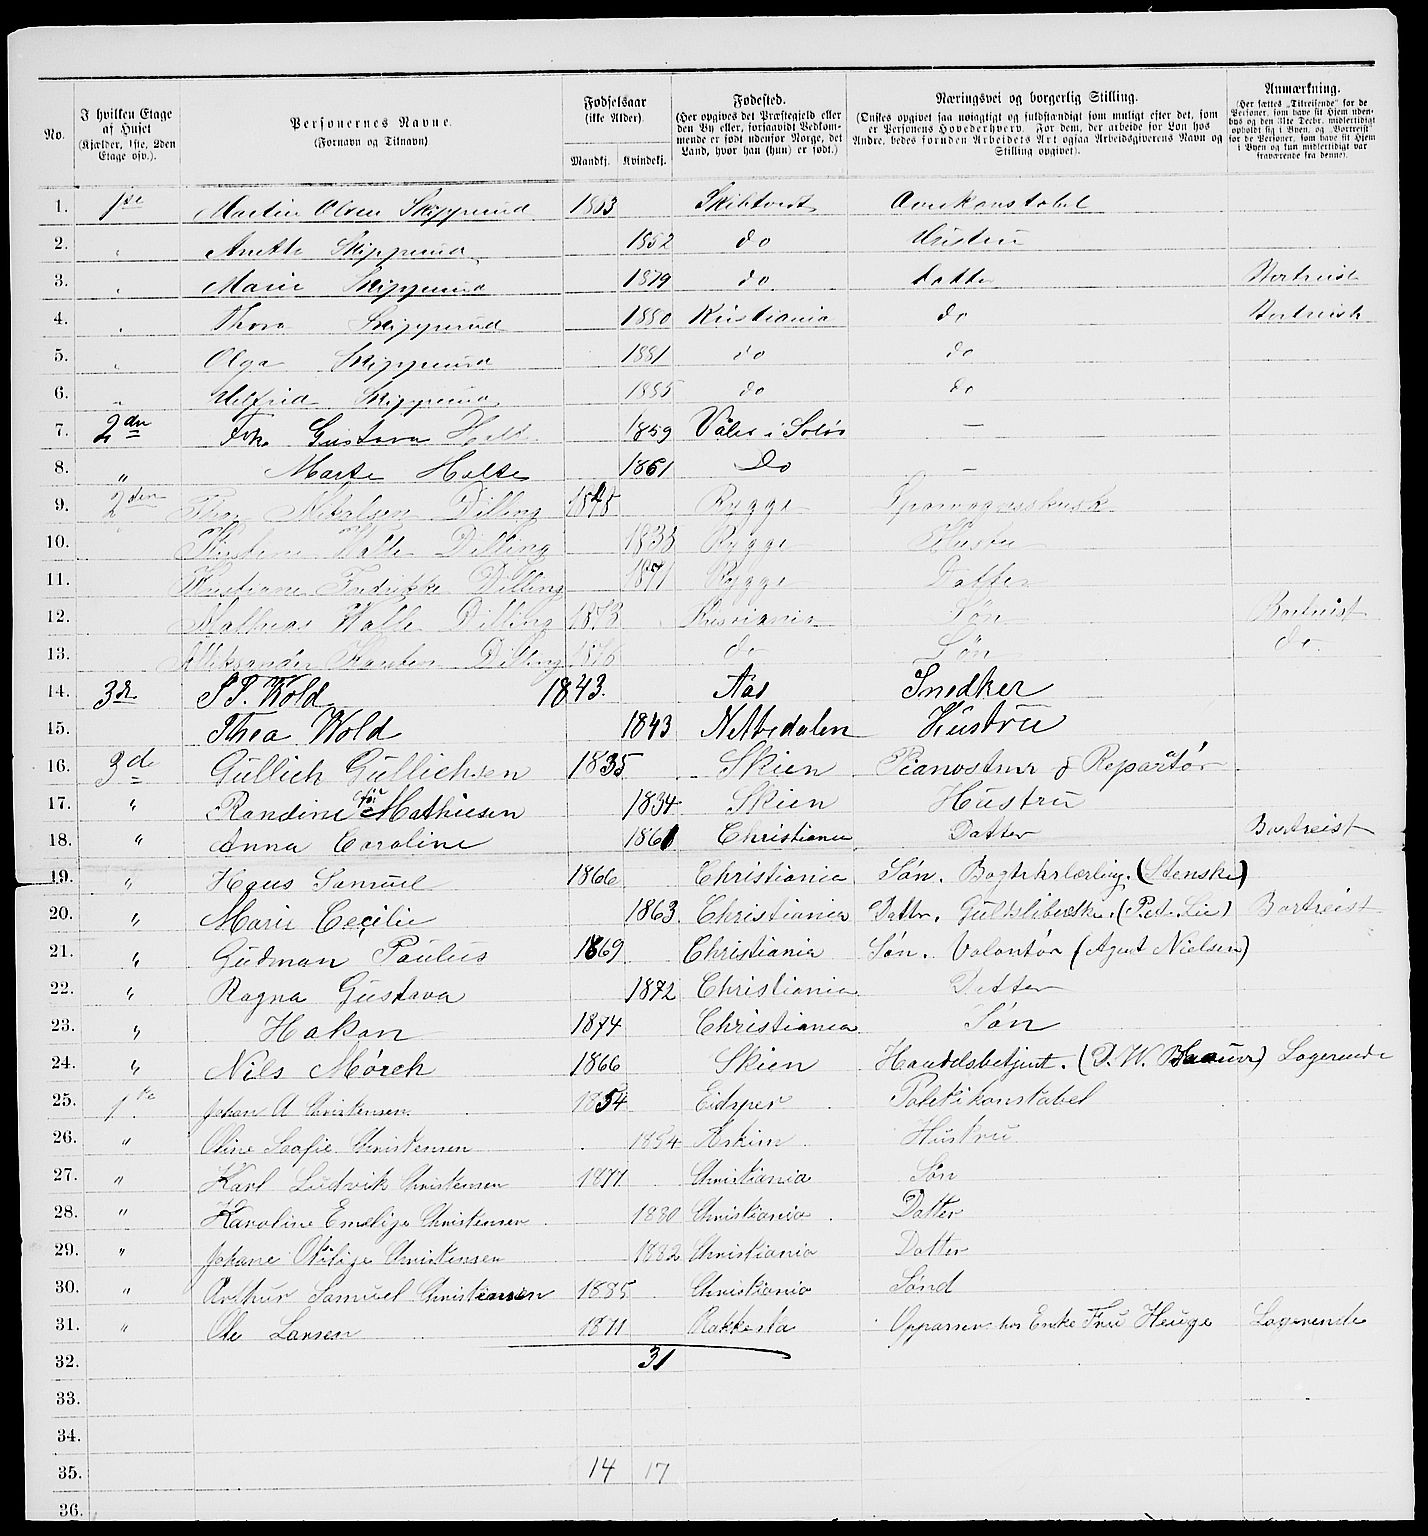 No.
I hvilken Etage af Huset (Kjælder, 1ste, 2den Etage osv.).
Personernes Navne. (Fornavn og Tilnavn)
Fødselsaar (ikke Alder). Mandkj. Kvindekj.
Fødested. (Her opgives det Præstegjeld eller den By eller, forsaavidt Vedkommende er født udenfor Norge, det Land, hvor han (hun) er født.)
Næringsvei og borgerlig Stilling. (Ønskes opgivet saa nøiagtigt og fuldstændigt som muligt efter det, som er Personens Hovederhverv. For dem, der arbeide for Løn hos Andre, bedes foruden Arbeidets Art ogsaa Arbeidsgiverens Navn og Stilling opgivet).
Anmærkning. (Her sættes „Tilreisende" for de Personer, som have sit Hjem udenbys og den 31te Decbr. midlertidigt opholdt sig i Byen, og „Bortreist" for de Personer, som have sit Hjem i Byen og kun midlertidigt var fraværende fra denne).
1. 1ste Martin Olsen Skipperud 1853 Skibtvedt Overkonstabel
2. " Anette Skipperud 1852 do Hustru
3. " Marie Skipperud 1879 do Datter Bortreist
4. " Thora Skipperud 1880 Kristiania do Bortreist
5. " Olga Skipperud 1881 do do
6. " Skipperud 1885 do do
7. 2den Frk. Gustava Holt 1859 Våler i Solør —
8. " Marte Holte 1861 Do —
9. 2den Thor Dilling Rygge
10. " Walle Dilling 1833 Rygge Hustru
11. Kristiane Fredrikke Dilling 1871 Rygge Datter
12. Mathias Walle Dilling 1873 Kristiania Søn Bortreist
13. Dilling 1876 do Søn do.
14. 3de S P. Wold 1843. Aas Snedker
15. Thea Wold 1843 Nettedalen Hustru
16. 3d Gullich Gullichsen 1835 Skien Pianostmr & Repartør
17. " Randine før Mathiesen 1834 Skien Hustru
18. " Anna Caroline 1861 Christiania Datter Bortreist
19. " Hans Samuel 1866 Christiania Søn. (Stenske)
20. " Marie Cecilie 1863. Christiania Datter. (Ped. Lie) Bortreist
21. " Gudman Paulus 1869 Christiania Søn. Volontør (Agent Nielsen)
22. " Ragna Gustava 1872 Christiania Datter
23. " Hakon 1874 Christiania Søn
24. " Nils Mørch 1866 Skien Handelsbetjent. Logerende
25. 1ste Johan A Christensen. 1854 Eidsper Politikonstabel
26. " Oline Sofie Christensen 1854 Askim Hustru
27. " Karl Ludvik Christensen 1877 Christiania Søn
28. " Karoline Emelige Christensen 1880 Christiania Datter
29. " Johane Otilige Christensen 1882 Christiania Datter
30. " Arthur Samuel Christiansen 1885 Christiania Sønd
31. " Ole Larsen 1871 Rakkesta Oppasser hos Enke Fru Heuge Logerende
32. 31
33.
34.
35. 14 17
36.